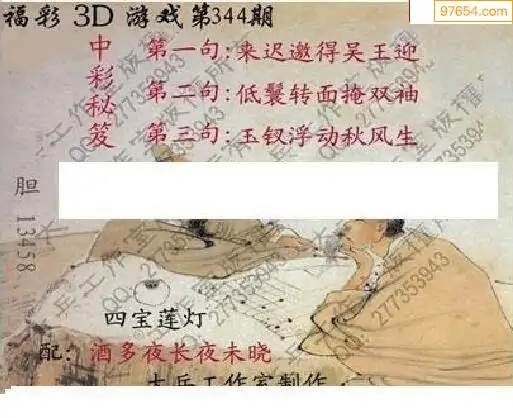 97654.com
福彩 3D 游戏第344期
中彩秘笈
第一句:来迟邀得吴王迎
第二句:低鬟转面掩双袖
第三句:玉钗浮动秋风生
胆 13458
四宝莲灯
配: 酒多夜长夜未晓
大兵工作室制作
大兵工作室版權所有
QQ:277353943